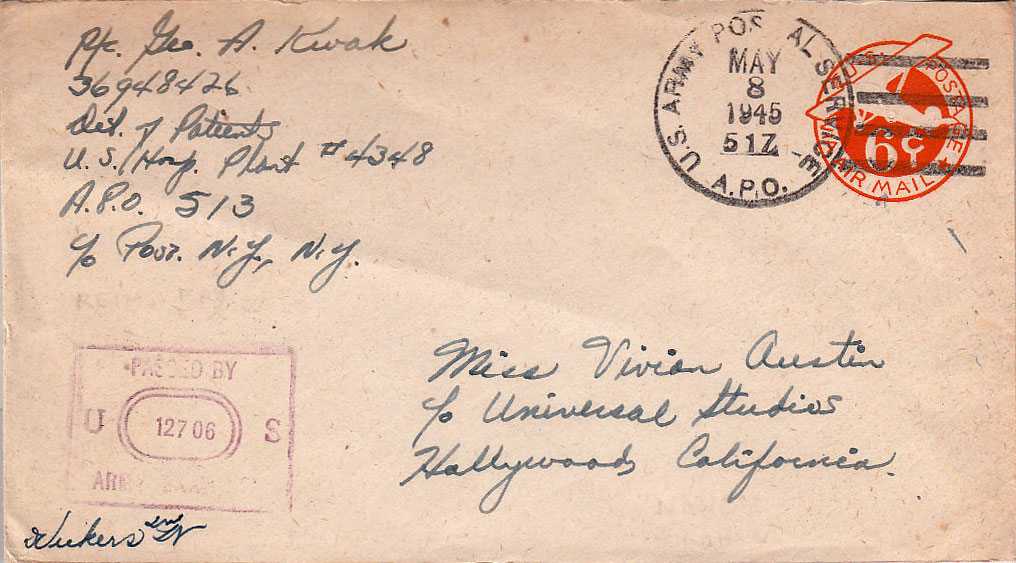 Pfc. Geo. A. Kwak
36948426
Det. of Patients
U.S. Hosp. Plant # 4348
A.P.O. 513
c/o N.Y., N.Y.
U.S. ARMY POSTAL SERVICE
MAY
8
1945
517
A.P.O.
U.S. POSTAGE
6¢
AIR MAIL
PASSED BY
U 12706 S
ARMY
Miss Vivian Austin
c/o Universal Studios
Hollywood California.